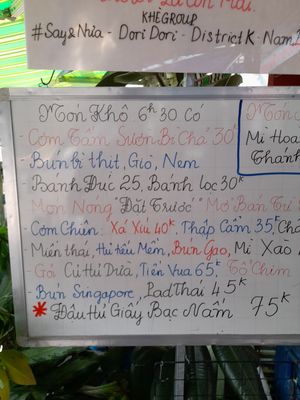 KHEGROUP
#Say&Nhìa - Dori Dori - District K - Nam
Món Khô 6h30 Có
- Cơm Tấm Sườn Bì Chả 30k
- Bún bì thịt, Giò, Nem
Bánh Đúc 25, Bánh lọc 30k
Mon Nóng "Đặt Trước" Mở Bán Trị
- Cơm Chiên: Xá Xíu 40k, Thập Cẩm 35k, Chả
Miến thái, Hủ tiếu Mềm, Bún Gạo, Mì Xào
- Gỏi Củ Hủ Dừa, Tiến Vua 65k
- Bún Singapore, PadThái 45k
* Đậu Hủ Giấy Bạc Nấm 75k
Mì Hoa
Thanh